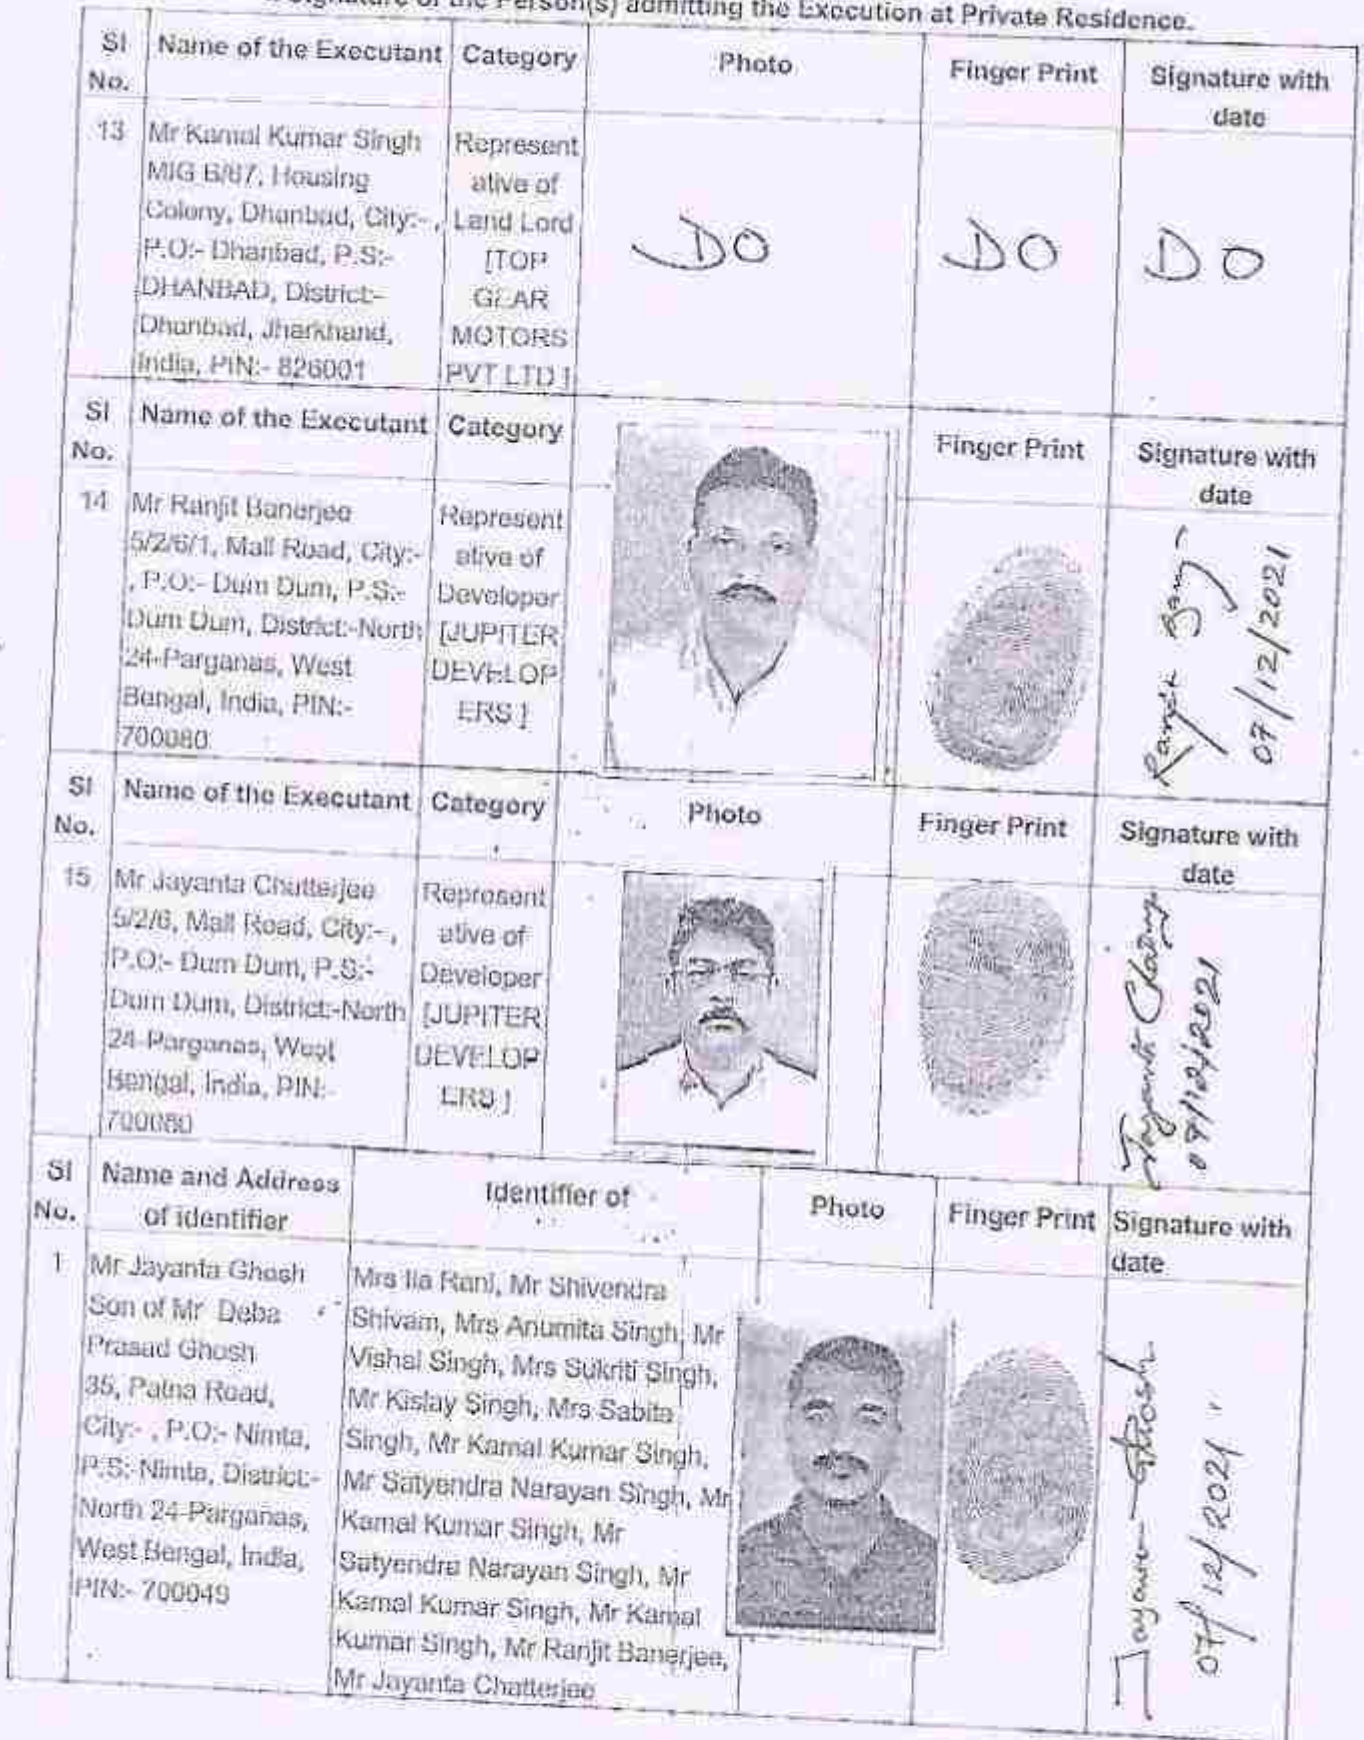 Signature of the Person(s) admitting the Execution at Private Residence.
Sl No. Name of the Executant Category Photo Finger Print Signature with date
13 Mr Kamal Kumar Singh
MIG B/87, Housing
Colony, Dhanbad, City:- ,
P.O:- Dhanbad, P.S:-
DHANBAD, District:-
Dhanbad, Jharkhand,
India, PIN:- 826001
Represent
ative of
Land Lord
[TOP
GEAR
MOTORS
PVT LTD ]
DO DO DO
Sl No. Name of the Executant Category Finger Print Signature with date
14 Mr Ranjit Banerjee
5/2/6/1, Mall Road, City:-
, P.O:- Dum Dum, P.S:-
Dum Dum, District:-North
24-Parganas, West
Bengal, India, PIN:-
700080
Represent
ative of
Developer
[JUPITER
DEVELOP
ERS ]
07/12/2021
Sl No. Name of the Executant Category Photo Finger Print Signature with date
15 Mr Jayanta Chatterjee
5/2/6, Mall Road, City:- ,
P.O:- Dum Dum, P.S:-
Dum Dum, District:-North
24-Parganas, West
Bengal, India, PIN:-
700080
Represent
ative of
Developer
[JUPITER
DEVELOP
ERS ]
07/12/2021
Sl No. Name and Address of identifier Identifier of Photo Finger Print Signature with date
1 Mr Jayanta Ghosh
Son of Mr Deba
Prasad Ghosh
35, Patna Road,
City:- , P.O:- Nimta,
P.S:-Nimta, District:-
North 24-Parganas,
West Bengal, India,
PIN:- 700049
Mrs Ila Rani, Mr Shivendra
Shivam, Mrs Anumita Singh, Mr
Vishal Singh, Mrs Sukriti Singh,
Mr Kislay Singh, Mrs Sabita
Singh, Mr Kamal Kumar Singh,
Mr Satyendra Narayan Singh, Mr
Kamal Kumar Singh, Mr
Satyendra Narayan Singh, Mr
Kamal Kumar Singh, Mr Kamal
Kumar Singh, Mr Ranjit Banerjee,
Mr Jayanta Chatterjee
Jayanta Ghosh
07/12/2021